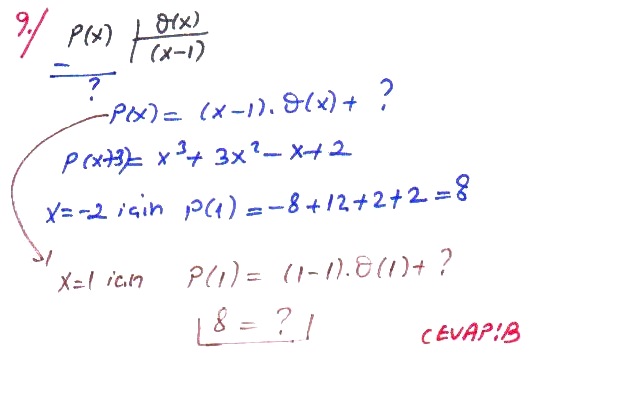 9./ P(x) | Q(x)
(x-1)
-
?
P(x) = (x-1). Q(x) + ?
P(x+3) = x³ + 3x² - x + 2
x = -2 için P(1) = -8 + 12 + 2 + 2 = 8
x=1 için P(1) = (1-1). Q(1) + ?
8 = ?
CEVAP:B